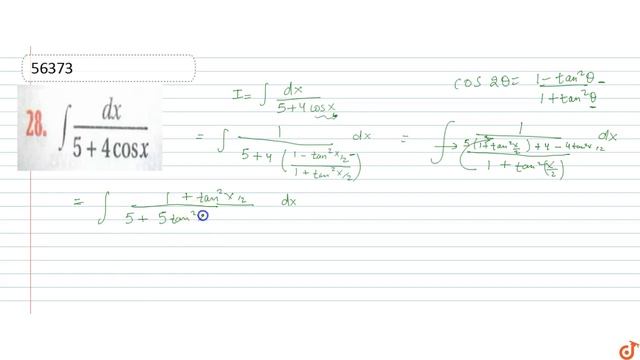 56373
28. ∫ dx / (5 + 4cosx)
I = ∫ dx / (5+4cosx)
cos 2θ = (1 - tan²θ) / (1 + tan²θ)
= ∫ 1 / (5+4 ((1 - tan²x/2) / (1 + tan²x/2))) dx = ∫ 1 / ((5(1+tan²x/2) + 4 - 4tan²x/2) / (1 + tan²(x/2))) dx
= ∫ (1 + tan²x/2) / (5 + 5tan²) dx